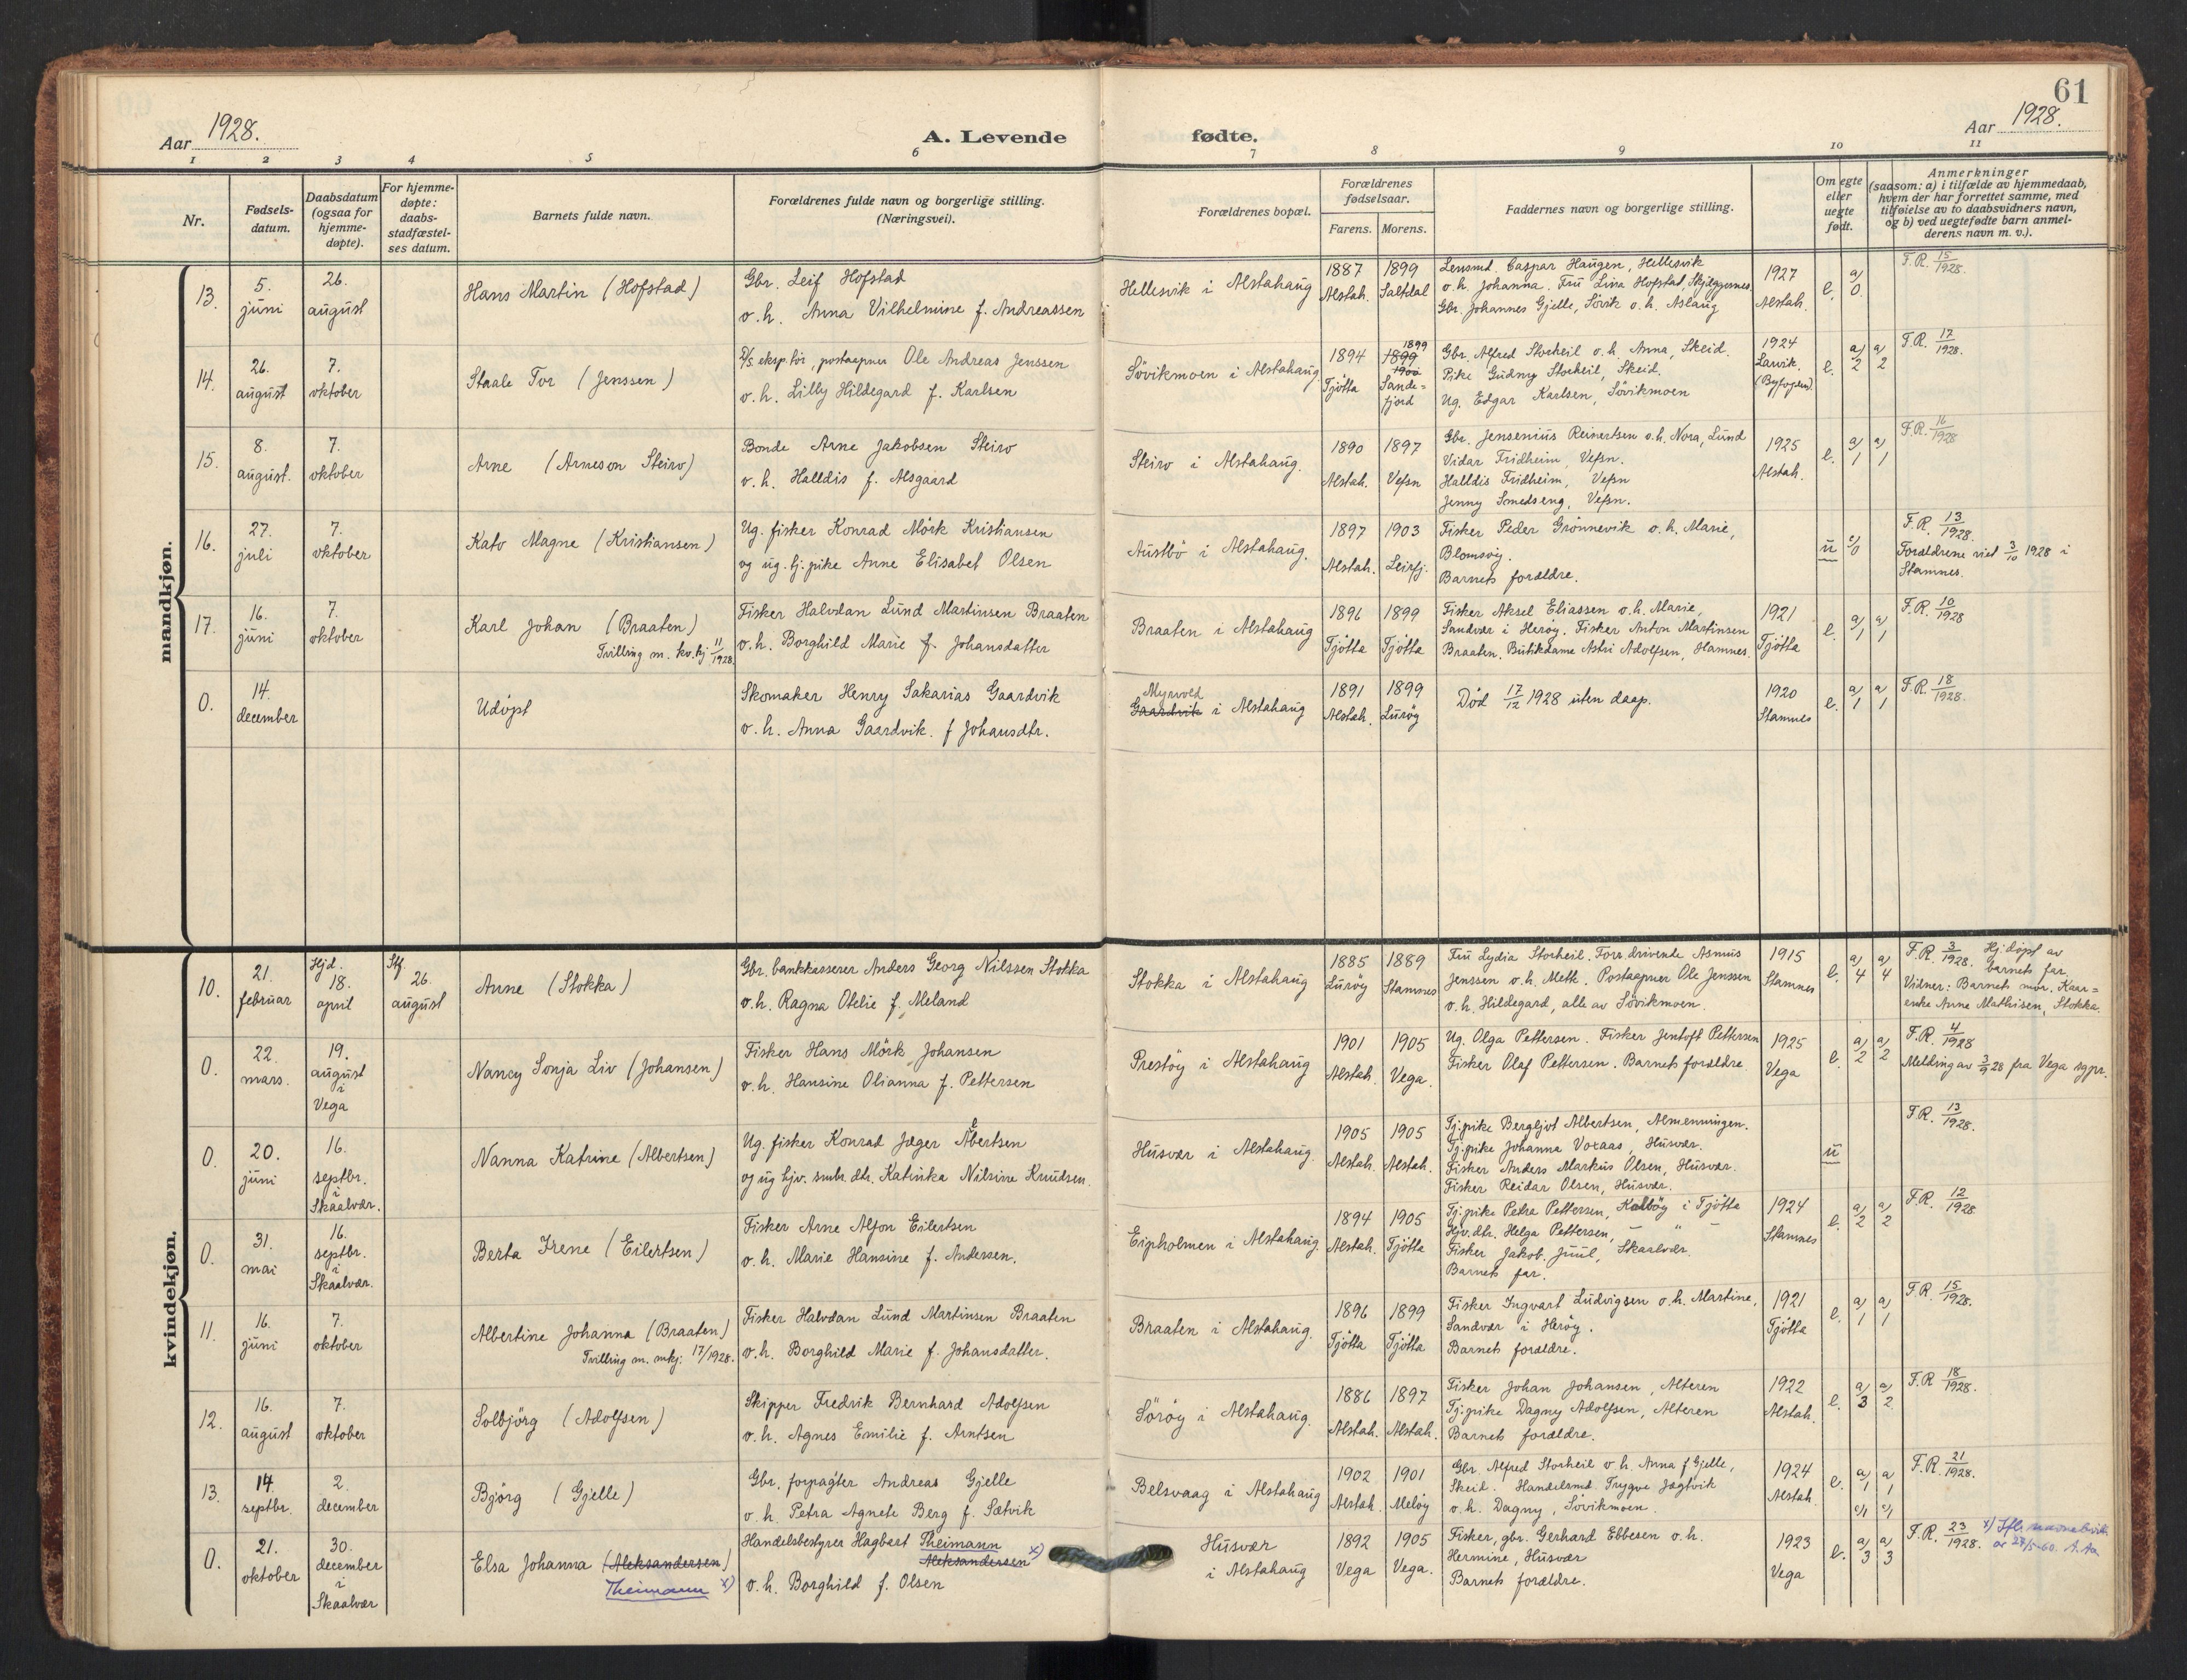 61
Aar 1928.
A. Levende
fødte.
Aar 1928.
1 2 3 4 5 6 7 8 9 10 11
Nr.
Fødsels-
datum.
Daabsdatum
(ogsaa for
hjemme-
døpte).
For hjemme-
døpte:
daabs-
stadfæstel-
ses datum.
Barnets fulde navn.
Forældrenes fulde navn og borgerlige stilling.
(Næringsvei).
Forældrenes bopæl.
Forældrenes
fødselsaar.
Farens. Morens.
Faddernes navn og borgerlige stilling.
Om egte
eller
uegte
født.
Anmerkninger
(saasom: a) i tilfælde av hjemmedaab,
hvem der har forrettet samme, med
tilføielse av to daabsvidners navn,
og b) ved uegtefødte barn anmel-
derens navn m. v.).
mandkjøn.
13.
5.
juni
26.
august
Hans Martin (Hofstad)
Gbr. Leif Hofstad
o. h. Anna Vilhelmine f. Andreassen
Hellesvik i Alstahaug
1887
Alstah.
1899
Saltdal
Lensmd. Caspar Haugen, Hellesvik
o. h. Johanna. Fru Lina Hofstad, Skjeggesnes.
Gbr. Johannes Gjelle, Sövik o. h. Aslaug
1927
Alstah.
e.
a/0
F.R. 15/1928.
14.
26.
august
7.
oktober
Staale Tor (Jenssen)
D/S. eksp.tör, postaapner Ole Andreas Jenssen
o. h. Lilly Hildegard f. Karlsen
Sövikmoen i Alstahaug
1894
Tjötta
1899
1899
1900
Sande-
fjord
Gbr. Alfred Storheil o. h. Anna, Skeid.
Pike Gudny Storheil, Skeid.
Ug. Edgar Karlsen, Sövikmoen
1924
Larvik.
(Byfogden).
e.
a/2 a/2
F.R. 17/1928.
15.
8.
august.
7.
oktober
Arne (Arneson Steiro)
Bonde Arne Jakobsen Steiro
o. h. Halldis f. Alsgaard
Steiro i Alstahaug.
1890
Alstah.
1897
Vefsn
Gbr. Jensenius Reinertsen o. h. Nora, Lund
Vidar Fridheim, Vefsn.
Halldis Fridheim, Vefsn
Jenny Smedseng, Vefsn.
1925
Alstah.
e.
a/1 a/1
F.R. 16/1928
16.
27.
juli
7.
oktober
Kato Magne (Kristiansen)
Ug. fisker Konrad Mörk Kristiansen
og ug. tj. pike Anne Elisabet Olsen
Austbö i Alstahaug.
1897
Alstah.
1903
Leirfj.
Fisker Peder Grönnevik o. h. Marie,
Blomsöy.
Barnets forældre.
u
F.R. 13/1928.
Forældrene viet 3/10 1928 i
Stamnes.
17.
16.
juni
7.
oktober
Karl Johan (Braaten)
Tvilling m. kv.kj 11/1928.
Fisker Halvdan Lund Martinsen Braaten
o. h. Borghild Marie f. Johansdatter
Braaten i Alstahaug
1896
Tjötta
1899
Tjötta
Fisker Aksel Eliassen o. h. Marie,
Sandvær i Heröy. Fisker Anton Martinsen
Braaten. Butikdame Astri Adolfsen, Hamnes.
1921
Tjötta
e.
a/1 a/1
F.R. 10/1928
0.
14.
december
Udöpt
Skomaker Henry Sakarias Gaardvik
o. h. Anna Gaardvik. f Johansdtr.
Myrvold
Gaardvik i Alstahaug
1891
Alstah.
1899
Luröy
Död 17/12 1928 uten daap.
1920
Stamnes
e.
a/1 a/1
F.R. 18/1928.
kvindekjøn.
10.
21.
februar
Hjd.
18.
april
Stf.
26.
august
Anne (Stokka)
Gbr. bankkasserer Anders Georg Nilssen Stokka
o. h. Ragna Otelie f. Meland
Stokka i Alstahaug
1885
Luröy
1889
Stamnes
Fru Lydia Storheil. Forr.drivende Asmus
Jenssen o. h. Meth. Postaapner Ole Jenssen
o. h. Hildegard, alle av Sövikmoen.
1915
Stamnes
e.
a/4 a/4
F.R. 3/1928. Hj.döpt av
barnets far.
Vidner: Barnets mor. Kaar=
enke Anne Mathisen, Stokka.
0.
22.
mars.
19.
august
i
Vega
Nancy Sonja Liv (Johansen)
Fisker Hans Mörk Johansen
o. h. Hansine Olianna f. Pettersen
Prestöy i Alstahaug
1901
Alstah.
1905
Vega.
Ug. Olga Pettersen. Fisker Jentoft Pettersen
Fisker Olaf Pettersen. Barnets forældre.
1925
Vega
e.
a/2 a/2
F.R. 4/1928
Melding av 3/9 28 fra Vega sgpr.
0.
20.
juni
16.
septbr.
i
Skaalvær.
Nanna Katrine (Albertsen)
Ug. fisker Konrad Jæger Albertsen
og ug hjv. smbr. dtr. Katinka Nilsine Knudsen.
Husvær i Alstahaug.
1905
Alstah.
1905
Alstah.
Tj.pike Bergljot Albertsen, Almenningen.
Tj.pike Johanna Voxaas, Husvær.
Fisker Anders Markus Olsen, Husvær.
Fisker Reidar Olsen, Husvær.
u
F.R. 13/1928.
0.
31.
mai
16.
septbr.
i
Skaalvær.
Berta Irene (Eilertsen)
Fisker Arne Alfon Eilertsen
o. h. Marie Hansine f. Andersen.
Eipholmen i Alstahaug
1894
Alstah.
1905
Tjötta
Tj.pike Petra Pettersen, Kalböy i Tjötta
Hjv.dtr. Helga Pettersen, – " –
Fisker Jakob Juul, Skaalvær.
Barnets far.
1924
Stamnes
e.
a/2 a/2
F.R. 12/1928
11.
16.
juni
7.
oktober
Albertine Johanna (Braaten)
Tvilling m. mkj. 17/1928.
Fisker Halvdan Lund Martinsen Braaten
o. h. Borghild Marie f. Johansdatter.
Braaten i Alstahaug.
1896
Tjötta
1899
Tjötta
Fisker Ingvart Ludvigsen o. h. Martine,
Sandvær i Heröy.
Barnets forældre.
1921
Tjötta
e.
a/1 a/1
F.R. 15/1928.
12.
16.
august
7.
oktober
Solbjörg (Adolfsen)
Skipper Fredrik Bernhard Adolfsen
o. h. Agnes Emilie f. Arntsen
Söröy i Alstahaug.
1886
Alstah.
1897
Alstah.
Fisker Johan Johansen, Alteren
Tj.pike Dagny Adolfsen, Alteren
Barnets forældre.
1922
Alstah.
e.
a/3 a/2
F.R 18/1928.
13.
14.
septbr.
2.
december
Björg (Gjelle)
Gbr. forpagter Andreas Gjelle
o. h. Petra Agnete Berg f. Sætvik
Belsvaag i Alstahaug
1902
Alstah.
1901
Melöy
Gbr. Alfred Storheil o. h. Anna f Gjelle,
Skeid. Handelsmd. Trygve Jagtvik
o. h. Dagny, Sövikmoen.
1924
Alstah.
e.
a/1 a/1
F.R. 21/1928.
0.
21.
oktober
30.
december
i
Skaalvær
Elsa Johanna (Aleksandersen)
Theimann x)
Handelsbestyrer Hagbart Theimann
Aleksandersen x)
o. h. Borghild f. Olsen
Husvær
i Alstahaug
1892
Vega
1905
Vega.
Fisker, gbr. Gerhard Ebbesen o. h.
Hermine, Husvær
Barnets forældre.
1923
Vega
e.
a/3 a/3
F.R. 23/1928.
x) Iflg. navnebevis